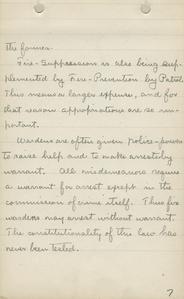 the former.
Fire-Suppression is also being sup-
plemented by Fire-Prevention by Patrol.
This means a larger expense, and for
that reason appropriations are so im-
portant.
Wardens are often given police-power
to raise help and to make arrests by
warrant. All misdemeanors require
a warrant for arrest except in the
commission of crime itself. Thus fire
wardens may arrest without warrant.
The constitutionality of this law has
never been tested.
7